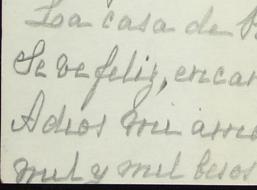 La casa de
Se ve feliz, encan
Adios mi amo
mil y mil besos